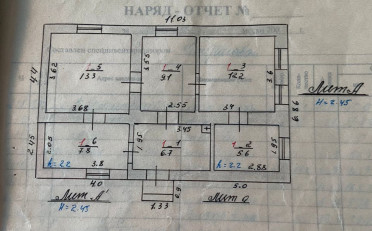 НАРЯД - ОТЧЕТ №
11.03
1 5
13.3
3.62
3.68
1 4
9.1
3.55
2.55
1 3
12.2
3.6
3.4
4.4
6.86
Лит А
H = 2.45
1 6
7.8
2.05
h=2.2
3.8
1 1
6.7
1.95
3.45
1 2
5.6
h=2.2
2.88
1.95
2.45
4.0
5.0
1.33
0.9
Лит А'
H = 2.45
Лит а